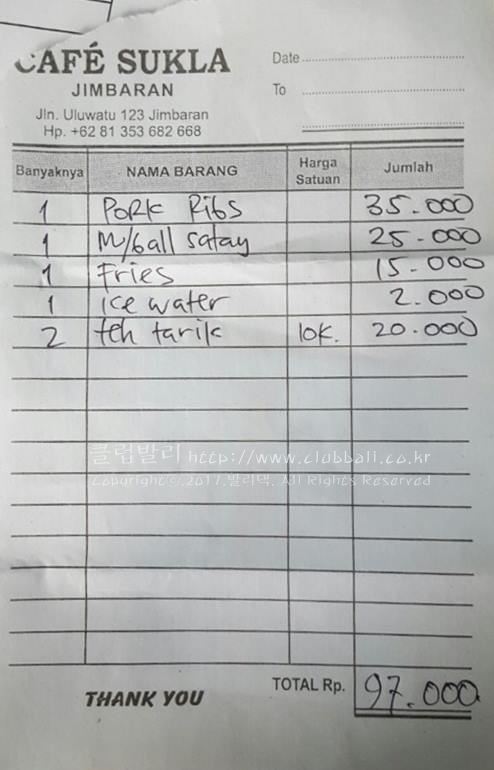 CAFÉ SUKLA
JIMBARAN
Jln. Uluwatu 123 Jimbaran
Hp. +62 81 353 682 668
Date
To
Banyaknya NAMA BARANG Harga Satuan Jumlah
1 Pork Ribs 35.000
1 M/ball satay 25.000
1 Fries 15.000
1 ice water 2.000
2 teh tarik 10K. 20.000
클럽발리 http://www.clubbali.co.kr
Copyright©.2017.발리댁. All Rights Reserved
THANK YOU TOTAL Rp. 97.000